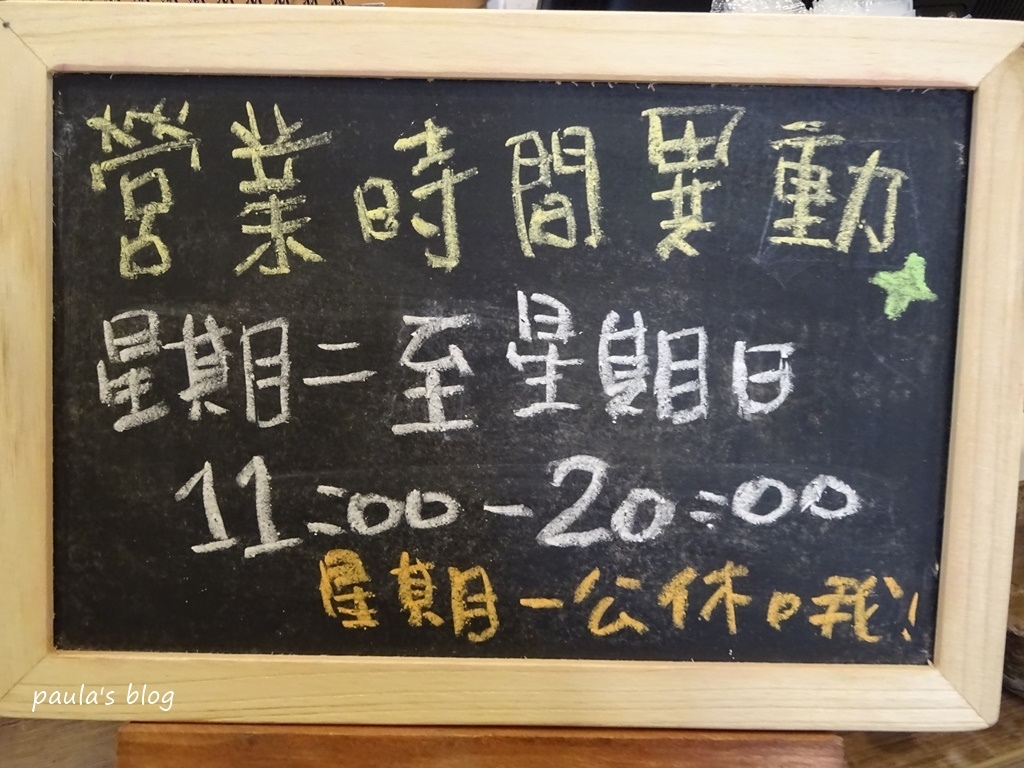 營業時間異動
星期二至星期日
11:00-20:00
星期一公休哦!
paula's blog